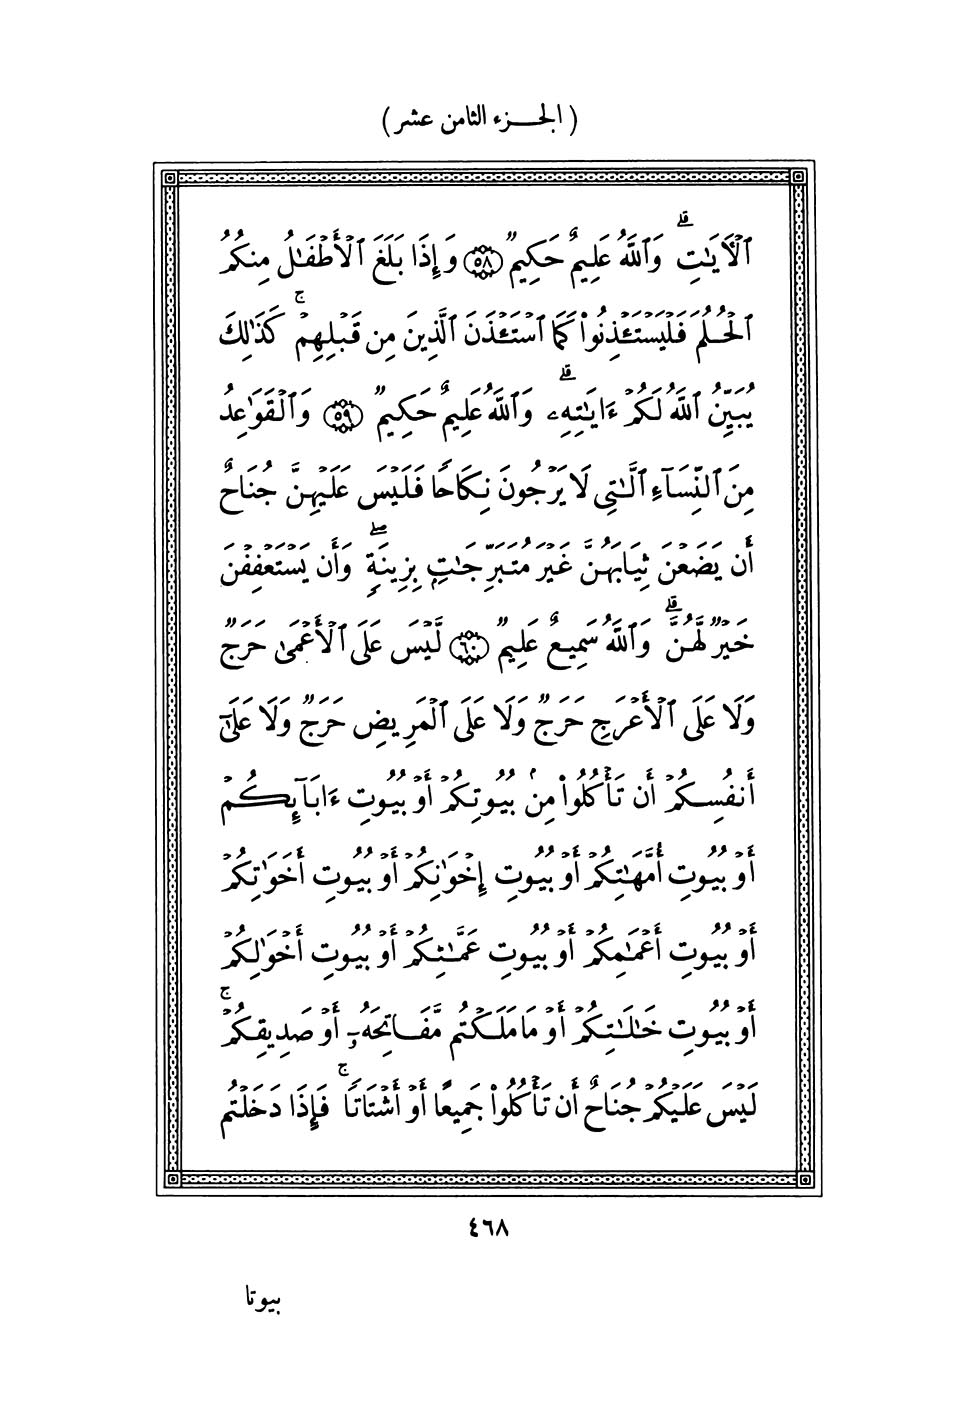 (الجزء الثامن عشر)
ٱلْأَيَٰتِ ۗ وَٱللَّهُ عَلِيمٌ حَكِيمٌ ۝٥٨ وَإِذَا بَلَغَ ٱلْأَطْفَٰلُ مِنكُمُ
ٱلْحُلُمَ فَلْيَسْتَـْٔذِنُوا۟ كَمَا ٱسْتَـْٔذَنَ ٱلَّذِينَ مِن قَبْلِهِمْ ۚ كَذَٰلِكَ
يُبَيِّنُ ٱللَّهُ لَكُمْ ءَايَٰتِهِۦ ۗ وَٱللَّهُ عَلِيمٌ حَكِيمٌ ۝٥٩ وَٱلْقَوَٰعِدُ
مِنَ ٱلنِّسَآءِ ٱلَّٰتِى لَا يَرْجُونَ نِكَاحًا فَلَيْسَ عَلَيْهِنَّ جُنَاحٌ
أَن يَضَعْنَ ثِيَابَهُنَّ غَيْرَ مُتَبَرِّجَٰتٍۭ بِزِينَةٍ ۖ وَأَن يَسْتَعْفِفْنَ
خَيْرٌ لَّهُنَّ ۗ وَٱللَّهُ سَمِيعٌ عَلِيمٌ ۝٦٠ لَّيْسَ عَلَى ٱلْأَعْمَىٰ حَرَجٌ
وَلَا عَلَى ٱلْأَعْرَجِ حَرَجٌ وَلَا عَلَى ٱلْمَرِيضِ حَرَجٌ وَلَا عَلَىٰٓ
أَنفُسِكُمْ أَن تَأْكُلُوا۟ مِنۢ بُيُوتِكُمْ أَوْ بُيُوتِ ءَابَآئِكُمْ
أَوْ بُيُوتِ أُمَّهَٰتِكُمْ أَوْ بُيُوتِ إِخْوَٰنِكُمْ أَوْ بُيُوتِ أَخَوَٰتِكُمْ
أَوْ بُيُوتِ أَعْمَٰمِكُمْ أَوْ بُيُوتِ عَمَّٰتِكُمْ أَوْ بُيُوتِ أَخْوَٰلِكُمْ
أَوْ بُيُوتِ خَٰلَٰتِكُمْ أَوْ مَا مَلَكْتُم مَّفَاتِحَهُۥٓ أَوْ صَدِيقِكُمْ ۚ
لَيْسَ عَلَيْكُمْ جُنَاحٌ أَن تَأْكُلُوا۟ جَمِيعًا أَوْ أَشْتَاتًا ۚ فَإِذَا دَخَلْتُم
٤٦٨
بيوتا